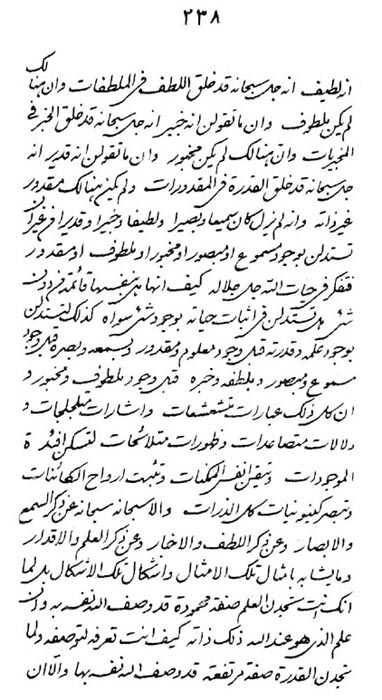 ٢٣٨
انه لطيف انه جل سبحانه قد خلق اللطف فى الملطفات وان هنالك
لم يكن ملطوف وان ما تقولن انه خبير انه جل سبحانه قد خلق الخبر فى
المخبريات وان هنالك لم يكن مخبور وان ما تقولن انه قدير انه
جل سبحانه قد خلق القدرة فى المقدورات ولم يكن هنالك مقدور
غير ذاته وانه لم يزل كان سميعا وبصيرا ولطيفا وخبيرا وقديرا من غير ان
تستدلن بوجود مسموع او مبصور او مخبور او ملطوف او مقدور
فتفكر فى حيات الله جل جلاله كيف انها هى بنفسها قائمة من دون
شئ هل تستدلن فى اثبات حياته بوجود شئ سواه كذلك لتستدلن
بوجود علمه وقدرته قبل وجود معلوم ومقدور وبسمعه وبصره قبل وجود
مسموع ومبصور وبلطفه وخبره قبل وجود ملطوف ومخبور و
ان كل ذلك عبارات متشعشعات واشارات متلجلجات و
دلالات متصاعدات وظهورات متلائحات لتسكن افئدة
الموجودات وتيقن انفس الممكنات وتثبت ارواح الكائنات
وتبصر كينونيات كل الذرات والا سبحانه سبحانه عن ذكر السمع
والابصار وعن ذكر اللطف والاخبار وعن ذكر العلم والاقدار
وما يشابه بامثال تلك الامثال واشكال تلك الاشكال بل لما
انك انت ستجدن العلم صفة محمودة قد وصف الله نفسه به وان
علم الذى هو عند الله ذلك ذاته كيف انت تعرفه لتوصفه ولما
تجدن القدرة صفة مرتفعة قد وصف الله نفسه بها والا ان